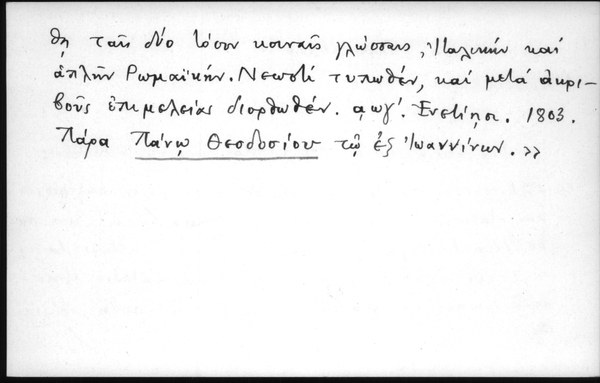 θῃ ταῖς δύο τόσον κοιναῖς γλώσσαις, Ἰταλικὴν καὶ
ἁπλῆν Ρωμαϊκήν. Νεωστὶ τυπωθέν, καὶ μετὰ ἀκρι-
βοῦς ἐπιμελείας διορθωθέν. αωγ΄. Ἐνετίῃσι. 1803.
Πάρα Πάνῳ Θεοδοσίου τῷ ἐξ Ἰωαννίνων.»